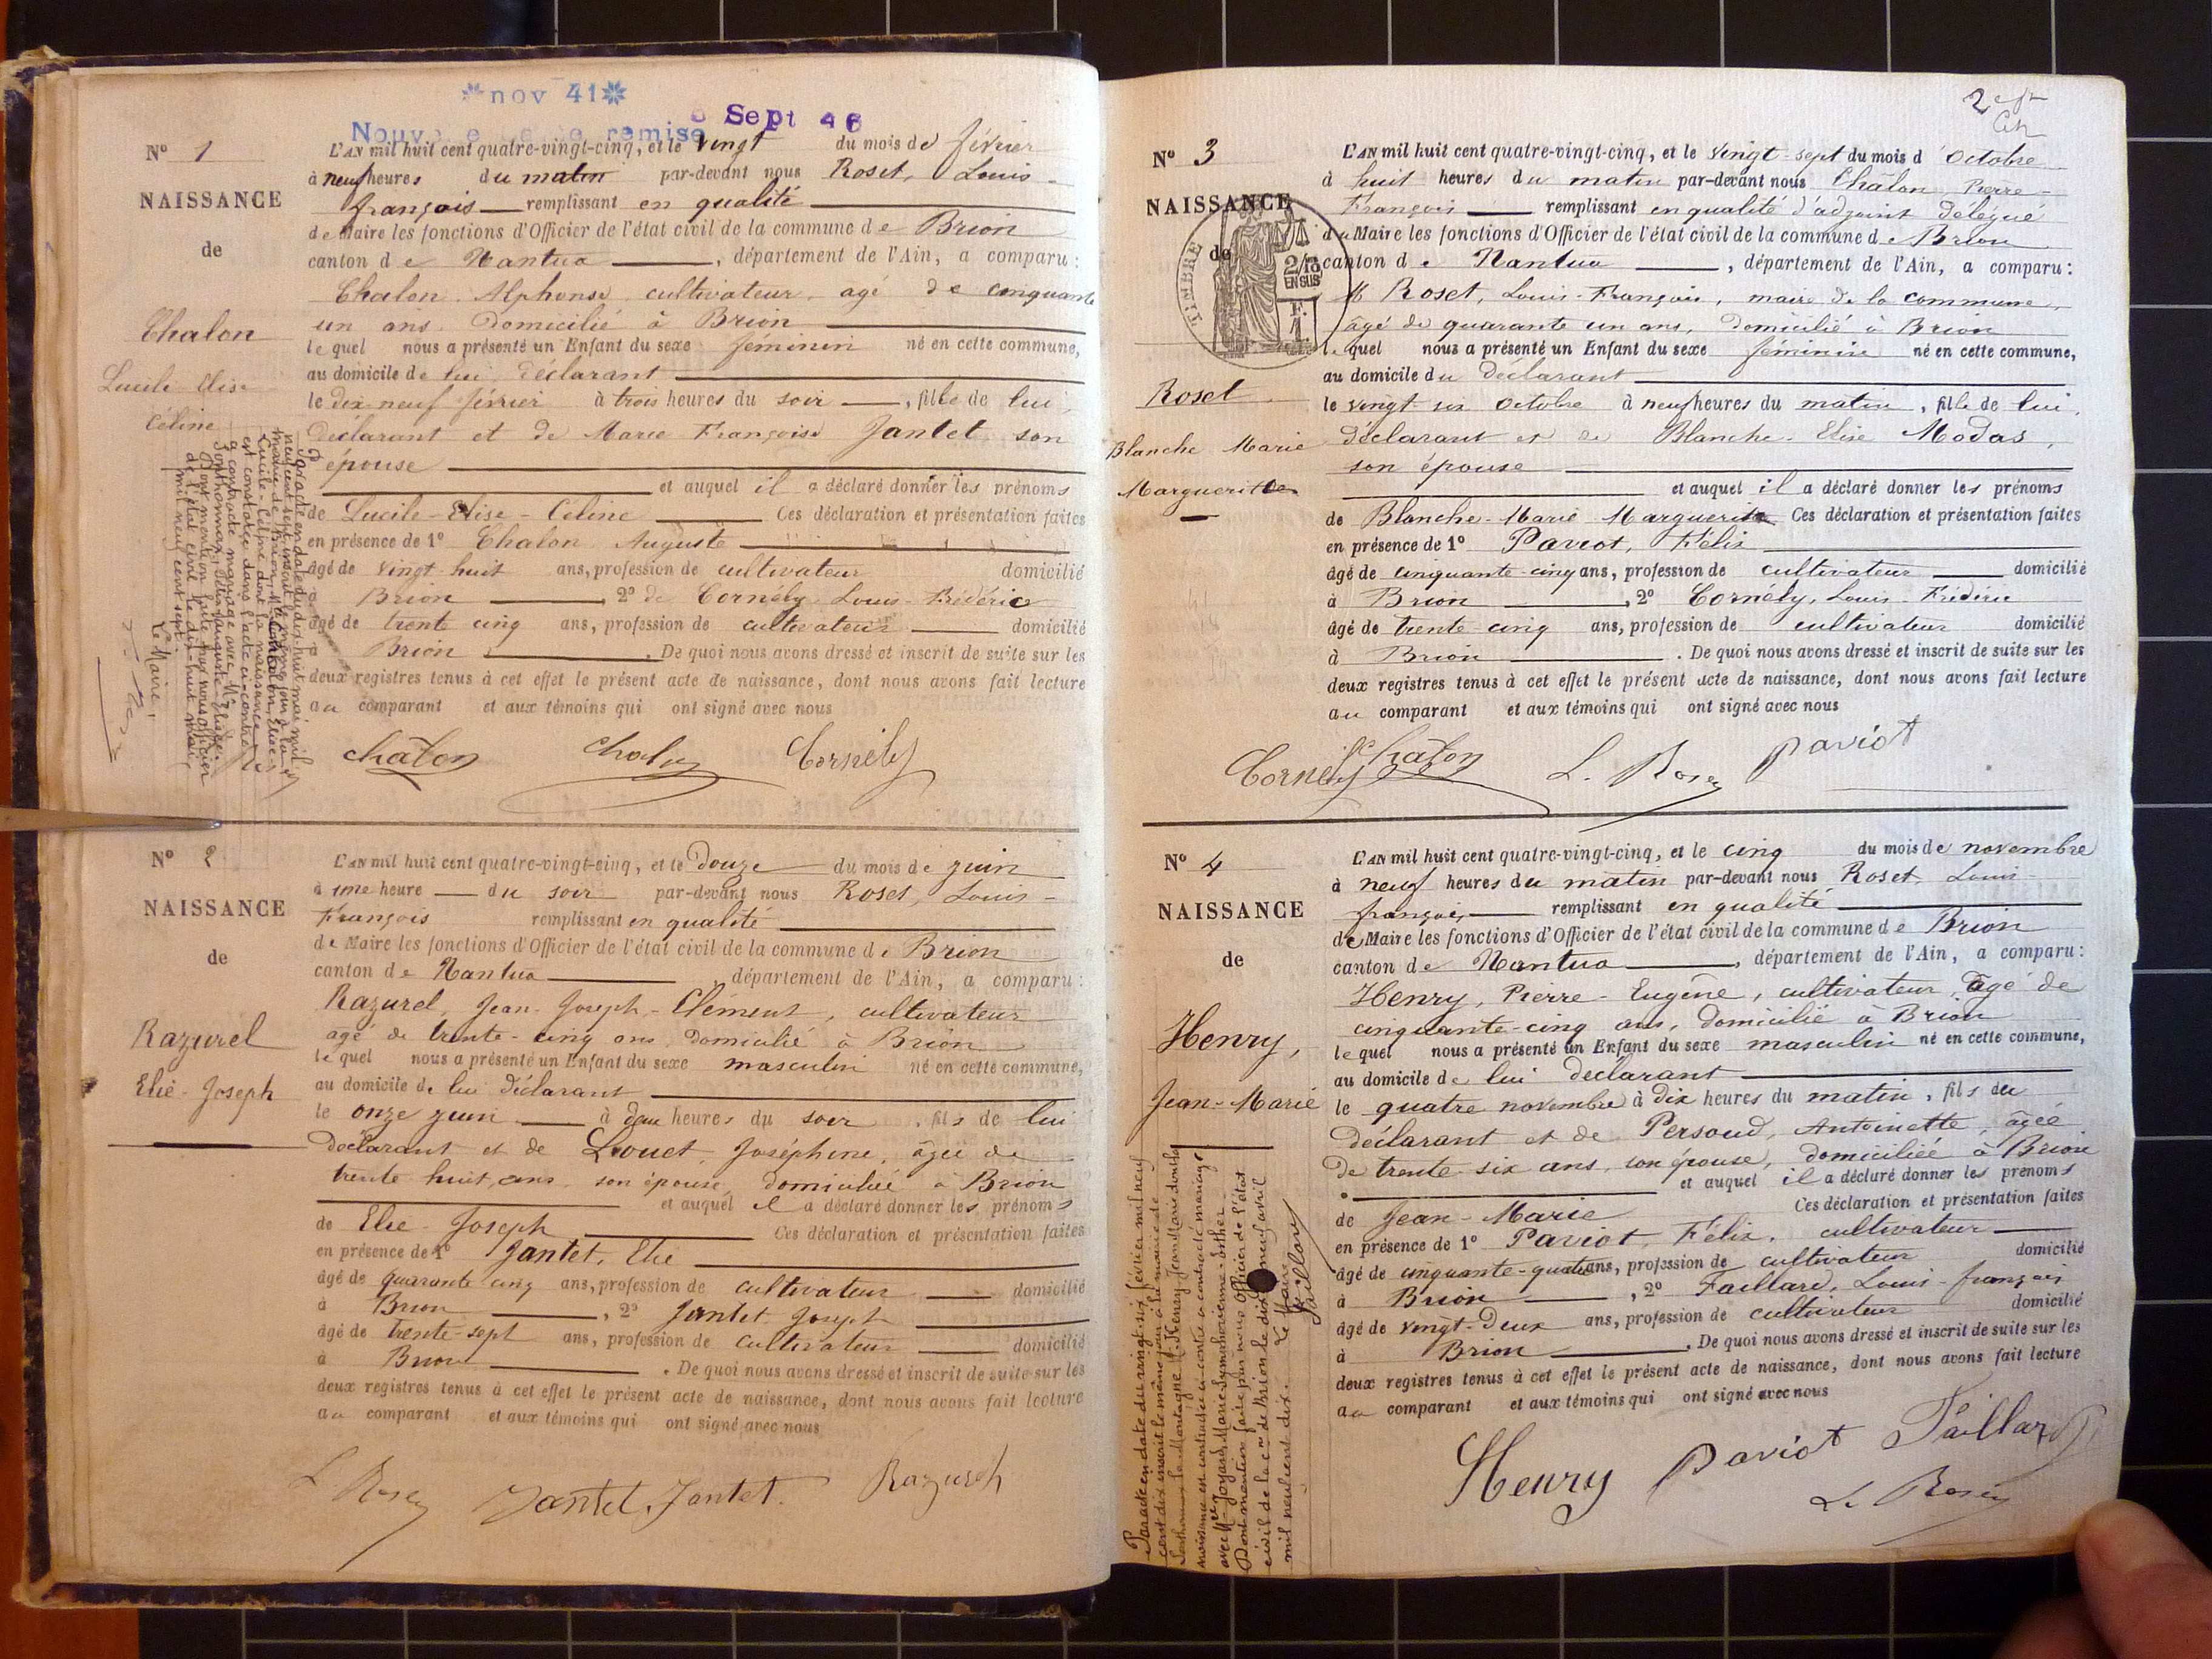 *nov 41*
Sept 46
remise
N° 1
NAISSANCE
de
Chalon
Lucile Elise
Céline
L'AN mil huit cent quatre-vingt-cinq, et le vingt du mois de février
à neuf heures du matin par-devant nous Roset, Louis-
françois remplissant en qualité
de Maire les fonctions d'Officier de l'état civil de la commune de Brion
canton de Nantua, département de l'Ain, a comparu :
Chalon Alphonse, cultivateur, agé de cinquante
un ans domicilié à Brion
lequel nous a présenté un Enfant du sexe féminin né en cette commune,
au domicile de lui déclarant
le dix-neuf février à trois heures du soir, fille de lui
déclarant et de Marie Françoise Jantet son
épouse
et auquel il a déclaré donner les prénoms
de Lucile-Elise-Céline Ces déclaration et présentation faites
en présence de 1° Chalon Auguste
âgé de vingt huit ans, profession de cultivateur domicilié
à Brion, 2° de Cornély Louis-Frédéric
âgé de trente cinq ans, profession de cultivateur domicilié
à Brion. De quoi nous avons dressé et inscrit de suite sur les
deux registres tenus à cet effet le présent acte de naissance, dont nous avons fait lecture
au comparant et aux témoins qui ont signé avec nous
Le Maire,
chalon Chalon Cornély
N° 2
NAISSANCE
de
Razurel
Elie-Joseph
L'AN mil huit cent quatre-vingt-cinq, et le Douze du mois de juin
à une heure du soir par-devant nous Roset, Louis-
François remplissant en qualité
de Maire les fonctions d'Officier de l'état civil de la commune de Brion
canton de Nantua, département de l'Ain, a comparu :
Razurel, Jean-Joseph-Clément, cultivateur
agé de trente-cinq ans domicilié à Brion
lequel nous a présenté un Enfant du sexe masculin né en cette commune,
au domicile de lui déclarant
le onze juin à deux heures du soir, fils de lui
déclarant et de Josephine, âgée de
trente huit ans son épouse, domiciliée à Brion
et auquel il a déclaré donner les prénoms
de Elie-Joseph Ces déclaration et présentation faites
en présence de 1° Jantet, Elie
âgé de quarante cinq ans, profession de cultivateur domicilié
à Brion, 2° Jantet Joseph
âgé de trente-sept ans, profession de cultivateur domicilié
à Brion. De quoi nous avons dressé et inscrit de suite sur les
deux registres tenus à cet effet le présent acte de naissance, dont nous avons fait lecture
au comparant et aux témoins qui ont signé avec nous
L. Roset Jantet Jantet Razurel
2
N° 3
NAISSANCE
de
TIMBRE
2/10
EN SUS
Roset
Blanche Marie
Marguerite
L'AN mil huit cent quatre-vingt-cinq, et le vingt-sept du mois d'Octobre
à huit heures du matin par-devant nous Châlon, Pierre-
François remplissant en qualité d'adjoint délégué
du Maire les fonctions d'Officier de l'état civil de la commune de Brion
canton de Nantua, département de l'Ain, a comparu :
M Roset, Louis-François, maire de la commune,
âgé de quarante un ans, domicilié à Brion
lequel nous a présenté un Enfant du sexe féminin né en cette commune,
au domicile du Déclarant
le vingt-six Octobre à neuf heures du matin, fille de lui,
déclarant et de Blanche-Elise Modas,
son épouse
et auquel il a déclaré donner les prénoms
de Blanche-Marie Marguerite Ces déclaration et présentation faites
en présence de 1° Paviot, Félix
âgé de cinquante-cinq ans, profession de cultivateur domicilié
à Brion, 2° Cornély, Louis-Frédéric
âgé de trente-cinq ans, profession de cultivateur domicilié
à Brion. De quoi nous avons dressé et inscrit de suite sur les
deux registres tenus à cet effet le présent acte de naissance, dont nous avons fait lecture
au comparant et aux témoins qui ont signé avec nous
Cornély Chalon L. Roset Paviot
N° 4
NAISSANCE
de
Henry,
Jean-Marie
L'AN mil huit cent quatre-vingt-cinq, et le cinq du mois de novembre
à neuf heures du matin par-devant nous Roset, Louis-
françois, remplissant en qualité
de Maire les fonctions d'Officier de l'état civil de la commune de Brion
canton de Nantua, département de l'Ain, a comparu :
Henry, Pierre-Eugène, cultivateur, âgé de
cinquante-cinq ans, domicilié à Brion
lequel nous a présenté un Enfant du sexe masculin né en cette commune,
au domicile de lui déclarant
le quatre novembre à Dix heures du matin, fils du
déclarant et de Persoud, Antoinette, âgée
de trente-six ans, son épouse, domiciliée à Brion
et auquel il a déclaré donner les prénoms
de Jean-Marie Ces déclaration et présentation faites
en présence de 1° Paviot, Félix, cultivateur
âgé de cinquante-quatre ans, profession de cultivateur domicilié
à Brion, 2° Faillard, Louis-françois
âgé de vingt-Deux ans, profession de cultivateur domicilié
à Brion. De quoi nous avons dressé et inscrit de suite sur les
deux registres tenus à cet effet le présent acte de naissance, dont nous avons fait lecture
au comparant et aux témoins qui ont signé avec nous
Par acte en date du vingt-six février mil neuf
cent dix inscrit le même jour à la mairie de
avec Melle Joyard Marie Symphorienne-Esther.
Dont mention faite par nous officier de l'état
civil de la cne de Brion le dix neuf avril
mil neuf cent dix.
Le Maire
Faillard
Henry Paviot Faillard
L. Roset